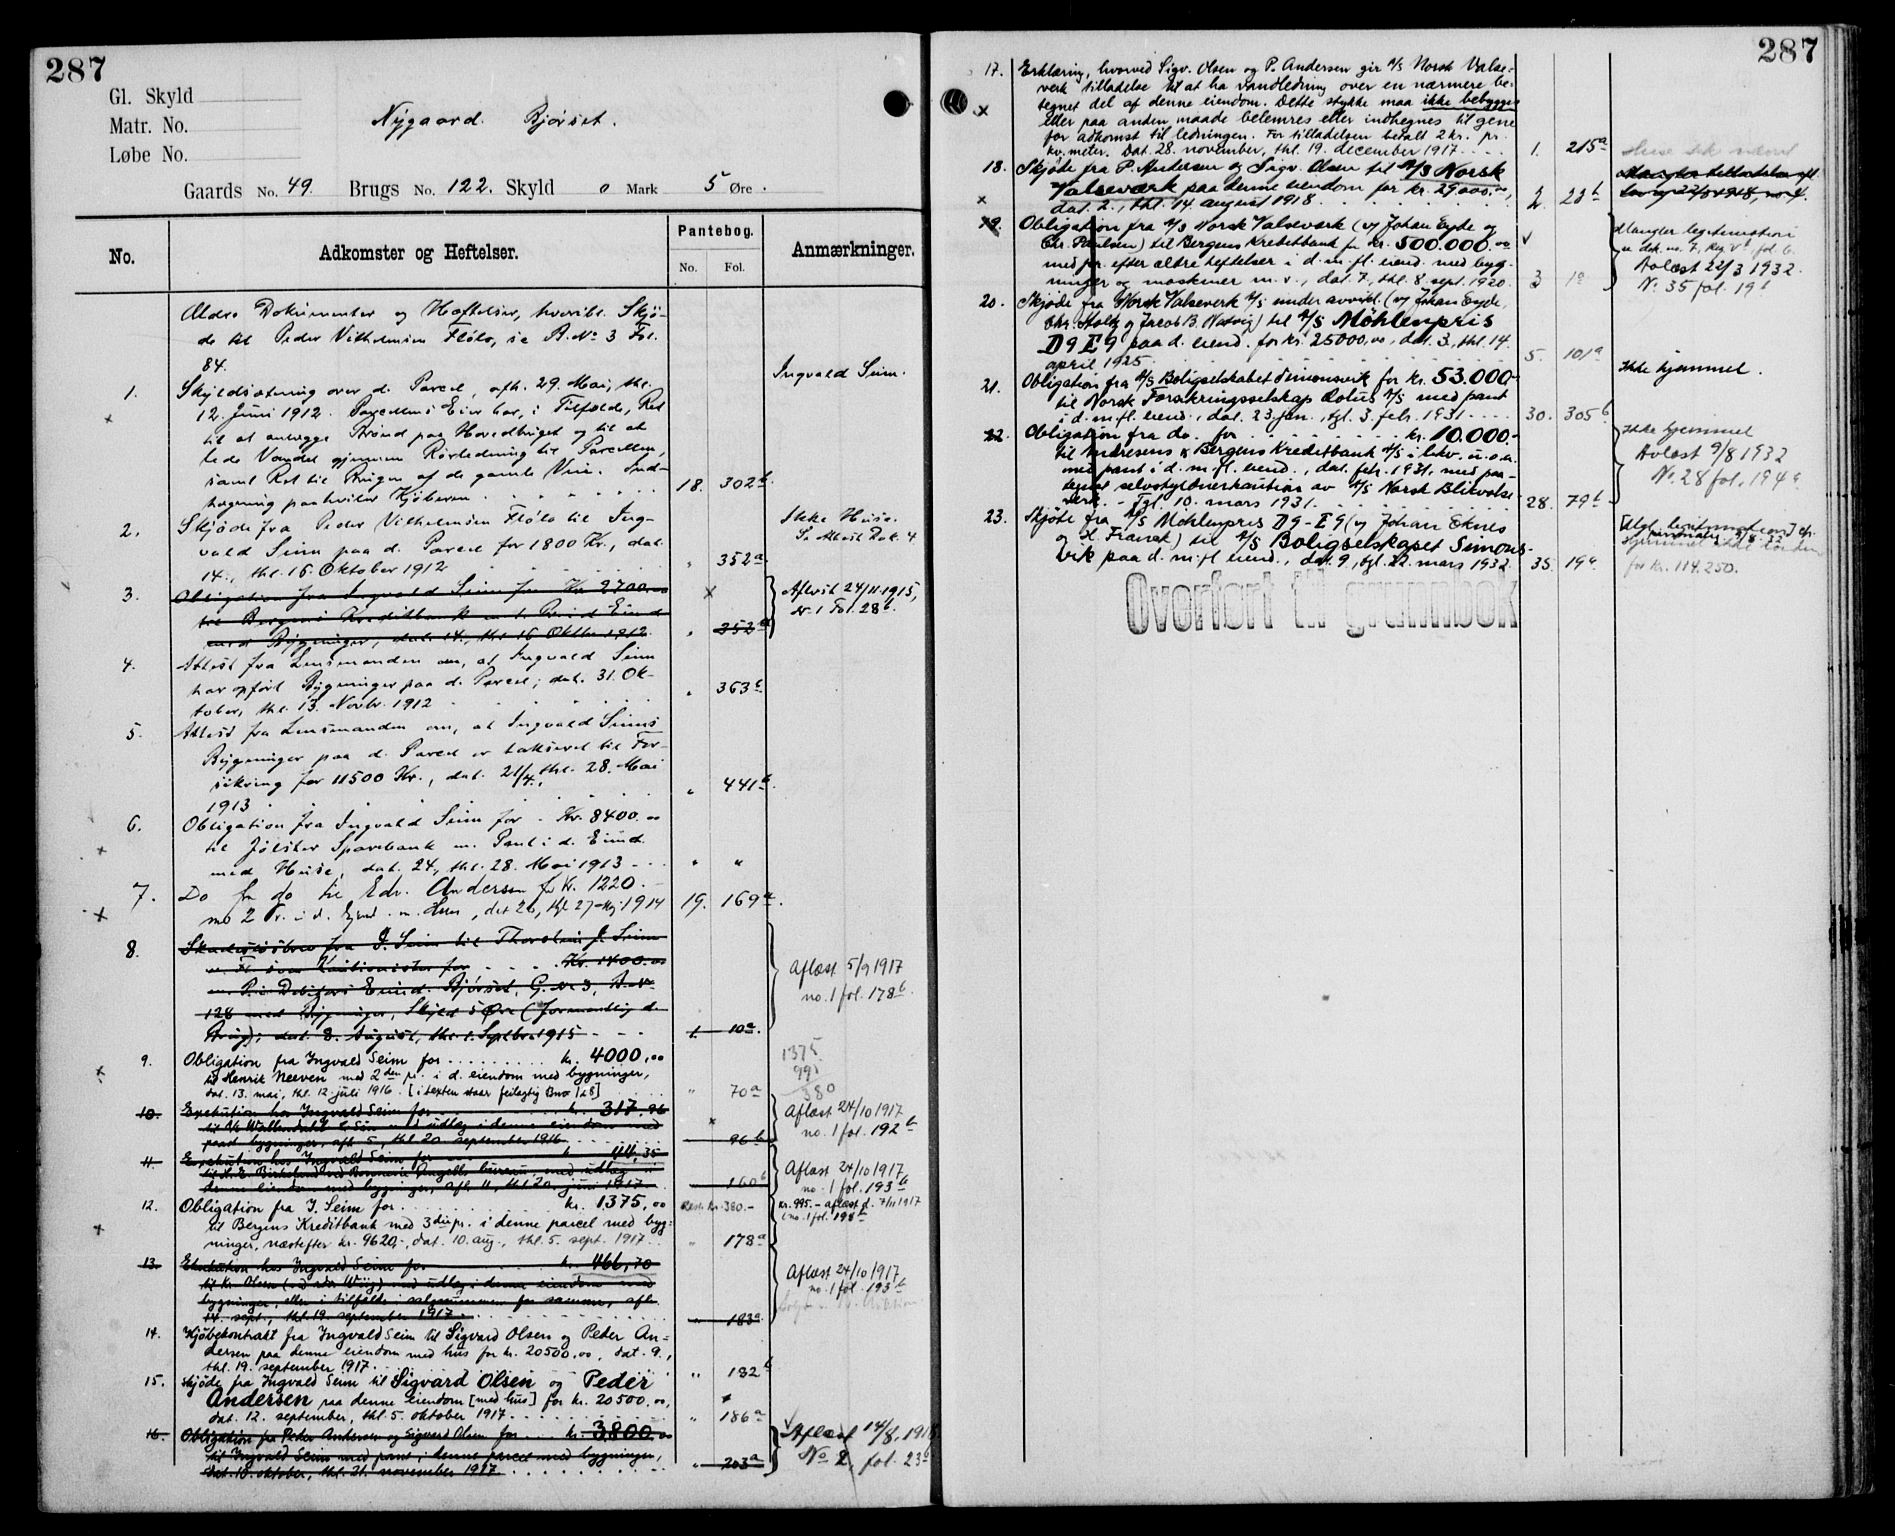 287
Gl. Skyld
Matr. No.
Løbe No.
Nygaard. Bjørset.
Gaards No. 49. Brugs No. 122. Skyld 0 Mark 5 Øre.
No.
Adkomster og Heftelser.
Pantebog.
No. Fol.
Anmærkninger.
Ældre Dokumenter og Hæftelser, hvoribl. Skjø-
de til Peder Vilhelmsen Flølo, se A. No 3 Fol.
84.
Ingvald Seim.
1. Skyldsætning over d. Parcel, afh. 29. Mai, thl.
12. Juni 1912. Parcellens Eier har, i Tilfælde, Ret
til at anlægge Brønd paa Hovedbruget og til at
lede Vandet gjennem Rørledning til Parcellen,
samt Ret til Brugen af de gamle Veie. Ind-
hegning paahviler Kjøberen. 18. 302b.
2. Skjøde fra Peder Vilhelmsen Flølo til Ing-
vald Seim paa d. Parcel for 1800 Kr., dat.
14., thl. 16. Oktober 1912 " 352a
Ikke Huse.
Se Attest Dok. 4
3. Obligation fra Ingvald Seim for Kr. 2700.00
til Bergens Kreditbank m. 1. Pr. i d. Eiend.
med Bygninger, dat. 14., thl. 16 Oktbr. 1912. " 352a
Aflæst 24/11 1915,
Nr. 1 Fol. 28b.
4. Attest fra Lensmanden om, at Ingvald Seim
har opført Bygninger paa d. Parcel; dat. 31. Ok-
tober, thl. 13. Novbr. 1912 " 363b
5. Attest fra Lensmanden om, at Ingvald Seims
Bygninger paa d. Parcel er takseret til For-
sikring for 11500 Kr., dat. 21/4, thl. 28. Mai
1913 " 441b.
6. Obligation fra Ingvald Seim for Kr. 8400.00
til Jølster Sparebank m. Pant i d. Eiend.
med Huse, dat. 24, thl. 28. Mai 1913 " "
7. Do fra do til Edv. Andersen for Kr. 1220.
m 2 Pr. i d. Ejend. m. Huse, dat 26, thl 27 Mj 1914 19. 169a.
8. Skadesløsbrev fra I. Seim til Thorstein J. Seim
Kautionister for Kr. 1400.00
m. P. i Debitors Eiend. Bjørset, G. Nr. 3, B. Nr
128 med Bygninger, Skyld 5 Øre (formentlig d.
Brug); dat. 8. August, thl. 1. Septbr. 1915 1. 10a.
Aflæst 5/9 1917
no. 1 fol. 178b.
9. Obligation fra Ingvald Seim for kr. 4000,00
til Henrik Neeven med 2den pr. i d. eiendom med bygninger,
dat. 13. mai, thl. 12. juli 1916. [i texten staar feilagtig Bno 128] " 70a
1375
995
380
10. Exekution hos Ingvald Seim for kr. 317,96
med udlæg i denne eiendom med
paast. bygninger, afh. 5, thl. 20 september 1916 96b
Aflæst 24/10 1917
no. 1 fol. 192b
11. Exekution hos Ingvald Seim for kr. 44,35
til L. E. Birkeland ved Bronsens Angells bureau, med udlæg i
denne eiendom med bygninger, afh. 11, thl. 20. juni 1917. 160b
Aflæst 24/10 1917
no. 1 fol. 193b
12. Obligation fra I. Seim for kr. 1375,00
til Bergens Kreditbank med 3die pr. i denne parcel med byg-
ninger, næstefter kr. 9620,-, dat. 10. aug., thl. 5. sept. 1917. " 178a
Rest kr. 380.-
Kr. 995.- aflæst d. 7/11 1917
i no. 1 fol. 198b
13. Exekution hos Ingvald Seim for kr. 466,70
til Kr. Olsen (ved adv. Wiig) med udlæg i denne eiendom med
bygninger, eller i tilfælde i salgssummen for samme, afh.
14. sept., thl. 19. september 1917. " 183a
Aflæst 24/10 1917
no. 1 fol. 193b
14. Kjøbekontrakt fra Ingvald Seim til Sigvard Olsen og Peder An-
dersen paa denne eiendom med hus for kr. 20500,00, dat. 9.,
thl. 19. september 1917. " 182b
15. Skjøde fra Ingvald Seim til Sigvard Olsen og Peder
Andersen paa denne eiendom [med hus] for kr. 20500,00,
dat. 12. september, thl. 5. oktober 1917. " 186a
16. Obligation fra Peder Andersen og Sigvard Olsen for kr. 3800,00
til Ingvald Seim med pant i denne parcel med bygninger,
dat. 10. oktober, thl. 21. november 1917 " 203a
Aflæst 14/8. 1918
No 2, fol. 23b
287
17. Erklæring, hvorved Sigv. Olsen og P. Andersen gir A/S Norsk Valse-
verk tilladelse til at ha vandledning over en nærmere be-
tegnet del af denne eiendom. Dette stykke maa ikke bebygges
eller paa anden maade belemres eller indhegnes til gene
for adkomst til ledningen. For tilladelsen betalt 2 kr. pr.
kv. meter. Dat. 28. november, thl. 19. december 1917. 1. 215a
18. Skjøde fra P. Andersen og Sigv. Olsen til A/S Norsk
Valseværk paa denne eiendom for kr. 29000,00,
dat. 2., thl. 14. august 1918 2. 23b
19. Obligation fra A/S Norsk Valseværk (v/ Johan Eyde og
Chr. Paulsen) til Bergens Kreditbank for kr. 500.000,00
med pr. efter ældre heftelser i d. m. fl. eiend. med byg-
ninger og maskiner m. v., dat. 7., thl. 8. sept. 1920. 3 1a
Mangler legitimation
Avlæst 22/3 1932.
No. 35 fol. 19b
20. Skjøde fra Norsk Valseverk A/S under avvikl. (v/ Johan Eyde,
Chr. Holtz og Jacob B. Natvig) til A/S Møhlenpris
D9E9 paa d. eiend. for kr. 25000,00, dat. 3., thl. 14.
april 1925. 5. 101a
Ikke hjemmel.
21. Obligation fra A/S Boligselskabet Simonsvik for kr. 53.000,-
til Norsk Forsikringsselskap Æolus A/S med pant
i d. m. fl. eiend., dat. 23 jan., tgl. 3 febr. 1931. 30. 305b
22. Obligation fra do. for kr. 10.000.-
til Andresens & Bergens Kreditbank A/S i likv. u. o. a.
med pant i d. m. fl. eiend., dat. febr. 1931, med paa-
tegnet selvskyldnerkaution av A/S Norsk Blikvalse-
verk. - Tgl. 10. mars 1931. 28. 79b
Ikke hjemmel
Avlæst 9/8 1932
No. 28 fol. 194a
23. Skjøte fra A/S Møhlenpris D9-E9 (v/ Johan Eknes
og H. Fransk) til A/S Boligselskapet Simons-
vik paa d. m. fl. eiend., dat. 9., tgl. 22. mars 1932. 35. 19a
for kr. 114.250.
Overført til grunnbok